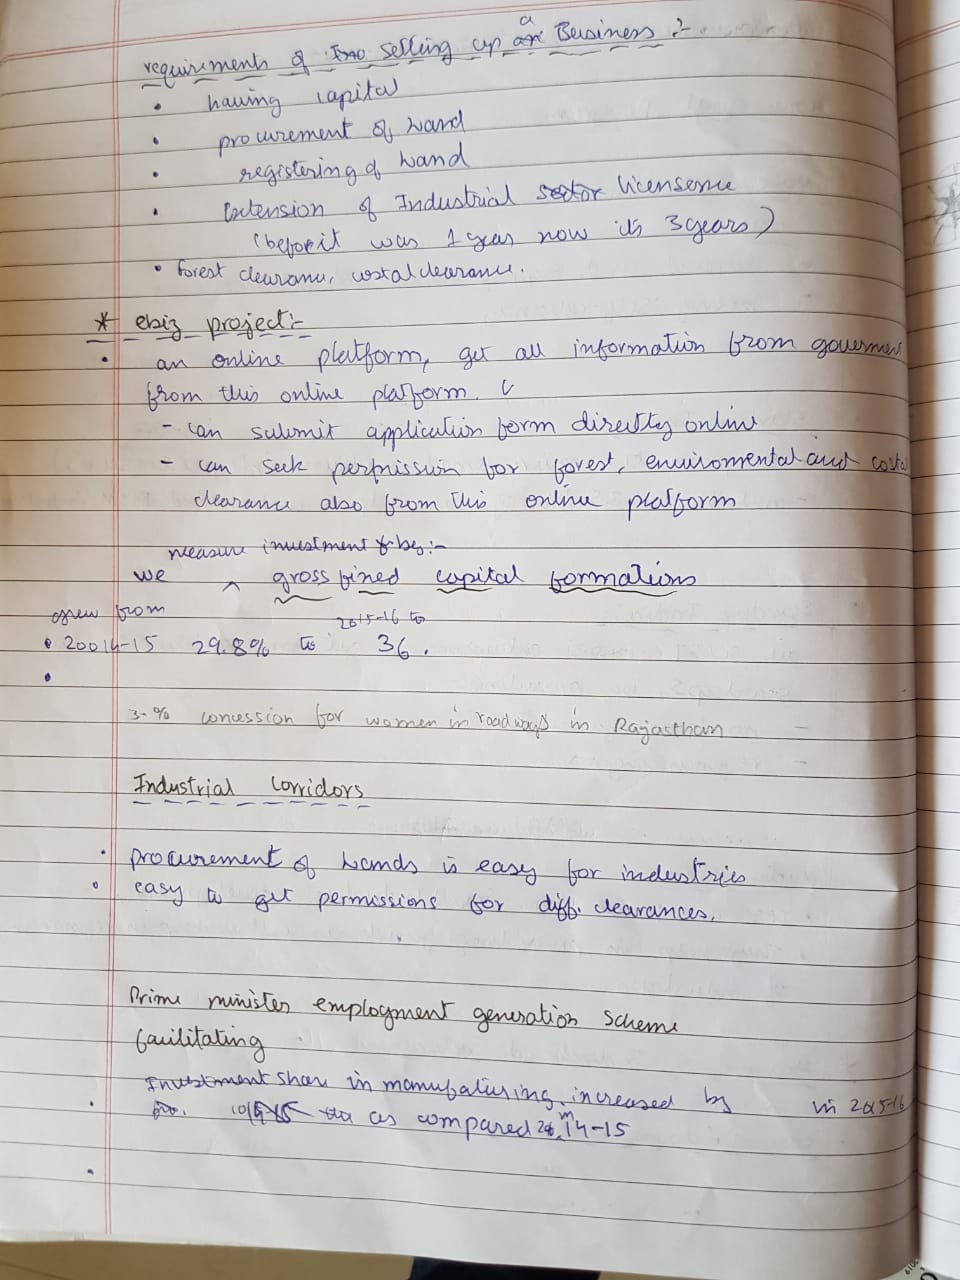 requirements of setting up a Business :-
• having capital
• procurement of Land
• registering of Land
• Extension of Industrial licensence
(before it was 1 year now its 3 years)
• forest clearance, costal clearance.
* ebiz project:-
• an online platform, get all information from governmen
from this online platform.
- can submit application form directly online
- can seek permission for forest, enviromental and costal
clearance also from this online platform
measure investment by:-
we ^ gross fixed capital formations
grew from 2015-16 to
• 20014-15 29.8% to 36.
•
3-% concession for women in roadways in Rajasthan
Industrial Corridors
• procurement of Lands is easy for industries
• easy to get permissions for diff. clearances.
Prime minister employment generation scheme
facilitating
Investment share in manufaturing increased by in 2015-16
• as compared in 14-15
•